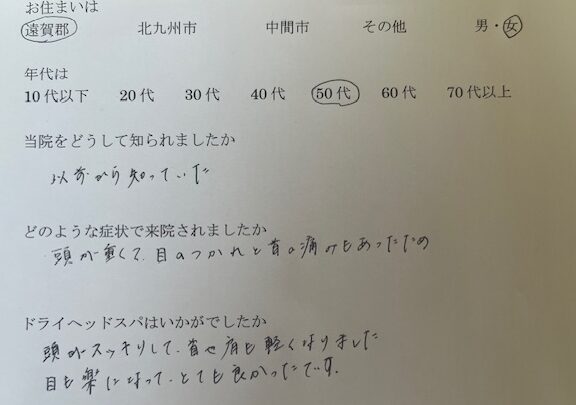 お住まいは
遠賀郡 北九州市 中間市 その他 男・女
年代は
10代以下 20代 30代 40代 50代 60代 70代以上
当院をどうして知られましたか
以前から知っていた
どのような症状で来院されましたか
頭が重くて、目のつかれと首の痛みもあったため
ドライヘッドスパはいかがでしたか
頭がスッキリして、首や肩も軽くなりました
目も楽になって、とても良かったです。